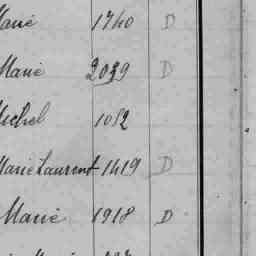 Marie 1740 D
Marie 2039 D
Michel 1082
Marie Laurent 1419 D
Marie 1918 D